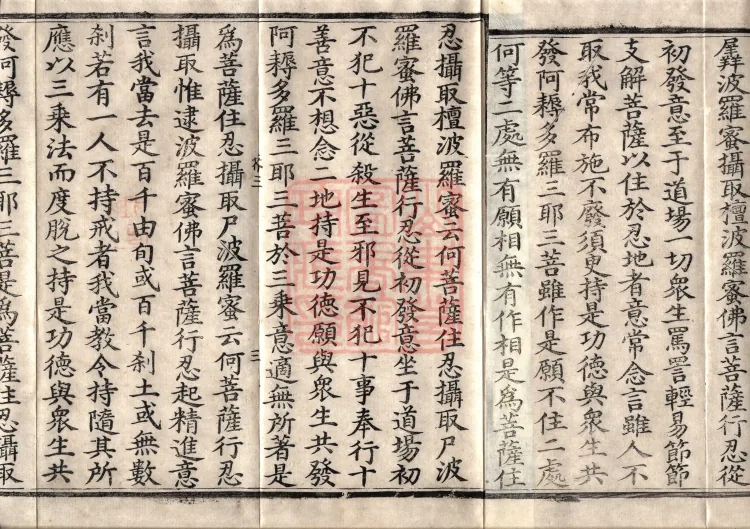 羼波羅蜜攝取檀波羅蜜佛言菩薩行忍從
初發意至于道場一切衆生罵詈輕易節節
支解菩薩以住於忍地者意常念言雖人不
取我常布施不廢須臾持是功德與衆生共
發阿耨多羅三耶三菩雖作是願不住二處
何等二處無有願相無有作相是爲菩薩住
忍攝取檀波羅蜜云何菩薩住忍攝取尸波
羅蜜佛言菩薩行忍從初發意坐于道場初
不犯十惡從殺生至邪見不犯十事奉行十
善意不想念二地持是功德願與衆生共發
阿耨多羅三耶三菩於三乘意適無所著是
爲菩薩住忍攝取尸波羅蜜云何菩薩行忍
三
攝取惟逮波羅蜜佛言菩薩行忍起精進意
言我當去是百千由旬或百千刹土或無數
刹若有一人不持戒者我當教令持隨其所
應以三乘法而度脫之持是功德與衆生共
發阿耨多羅三耶三菩是爲菩薩住忍攝取